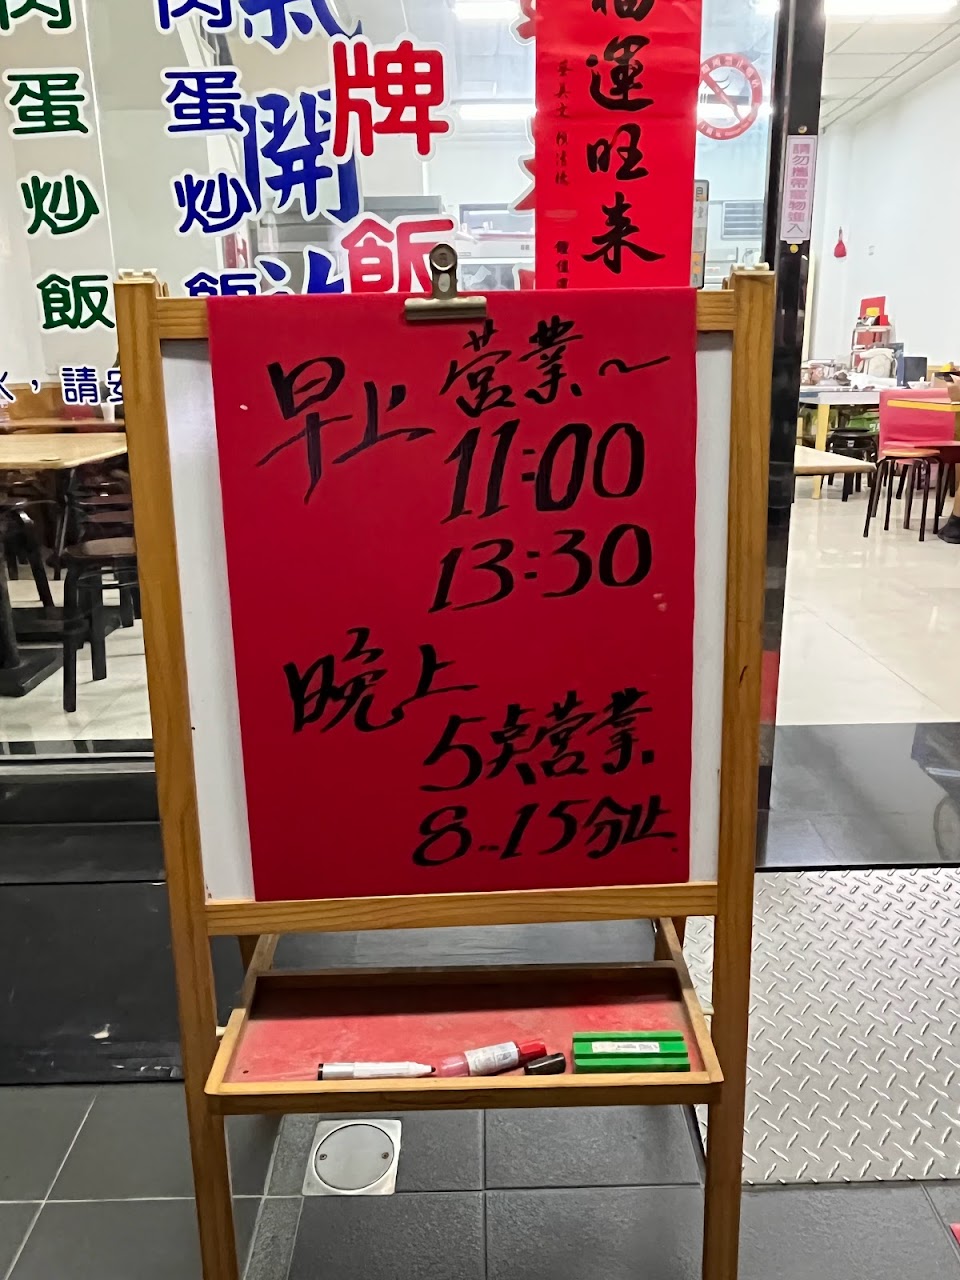 肉蛋炒飯
肉蛋炒飯
氣開
牌飯
福運旺來
請勿攜帶寵物進入
水，請安
早上 营業～
11:00
13:30
晚上
5点营業
8-15分止